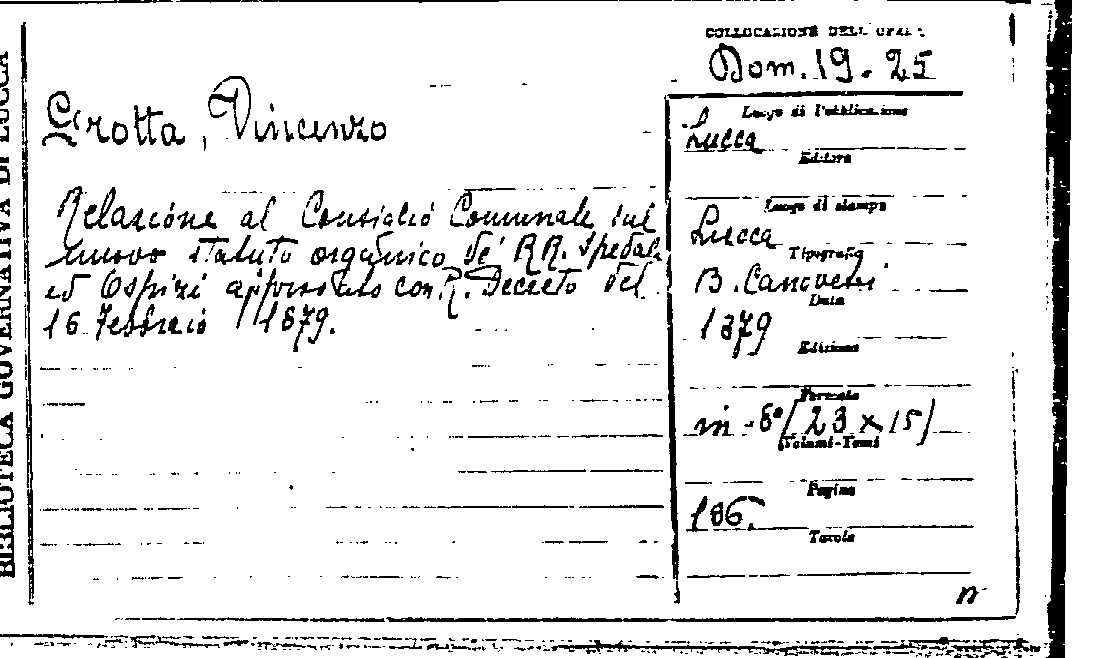 BIBLIOTECA GOVERNATIVA DI LUCCA
COLLOCAZIONE DELL'OPERA
Dom. 19. 25
Grotta, Vincenzo
Relazione al Consiglio Comunale sul
nuovo statuto organico de' RR. Spedali
ed Ospizi approvato con R. Decreto del
16 Febbraio 1879.
Luogo di Pubblicazione
Lucca
Editore
Luogo di stampa
Lucca
Tipografia
B. Canovetti
Data
1879
Edizione
Formato
in-8° (23 x 15)
Volumi-Tomi
Pagine
186.
Tavole